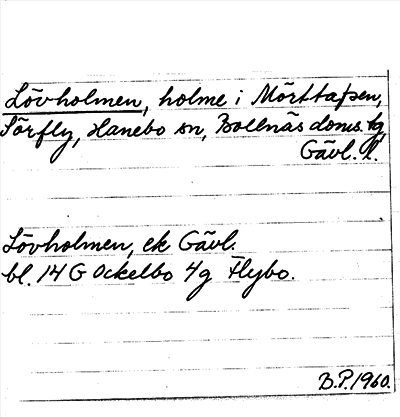 Lövholmen, holme i Mörttappen,
Sörfly, Hanebo sn, Bollnäs doms. tg
Gävl. l.
Lövholmen, ek Gävl.
bl. 14 G Ockelbo 4g Flybo.
B.P. 1960.